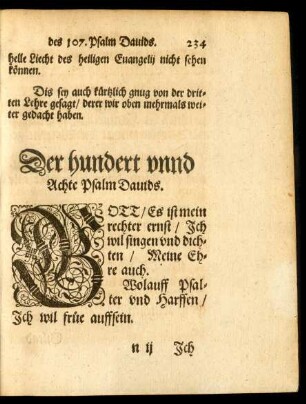 des 107. Psalm Dauids. 234
helle Liecht des heiligen Euangelij nicht sehen
können.
Dis sey auch kürtzlich gnug von der drit-
ten Lehre gesagt/ derer wir oben mehrmals wei-
ter gedacht haben.
Der hundert vnnd
Achte Psalm Dauids.
GOTT/ Es ist mein
rechter ernst/ Ich
wil singen vnd dich-
ten/ Meine Eh-
re auch.
Wolauff Psal-
ter vnd Harffen/
Ich wil früe auffsein.
n ij Ich